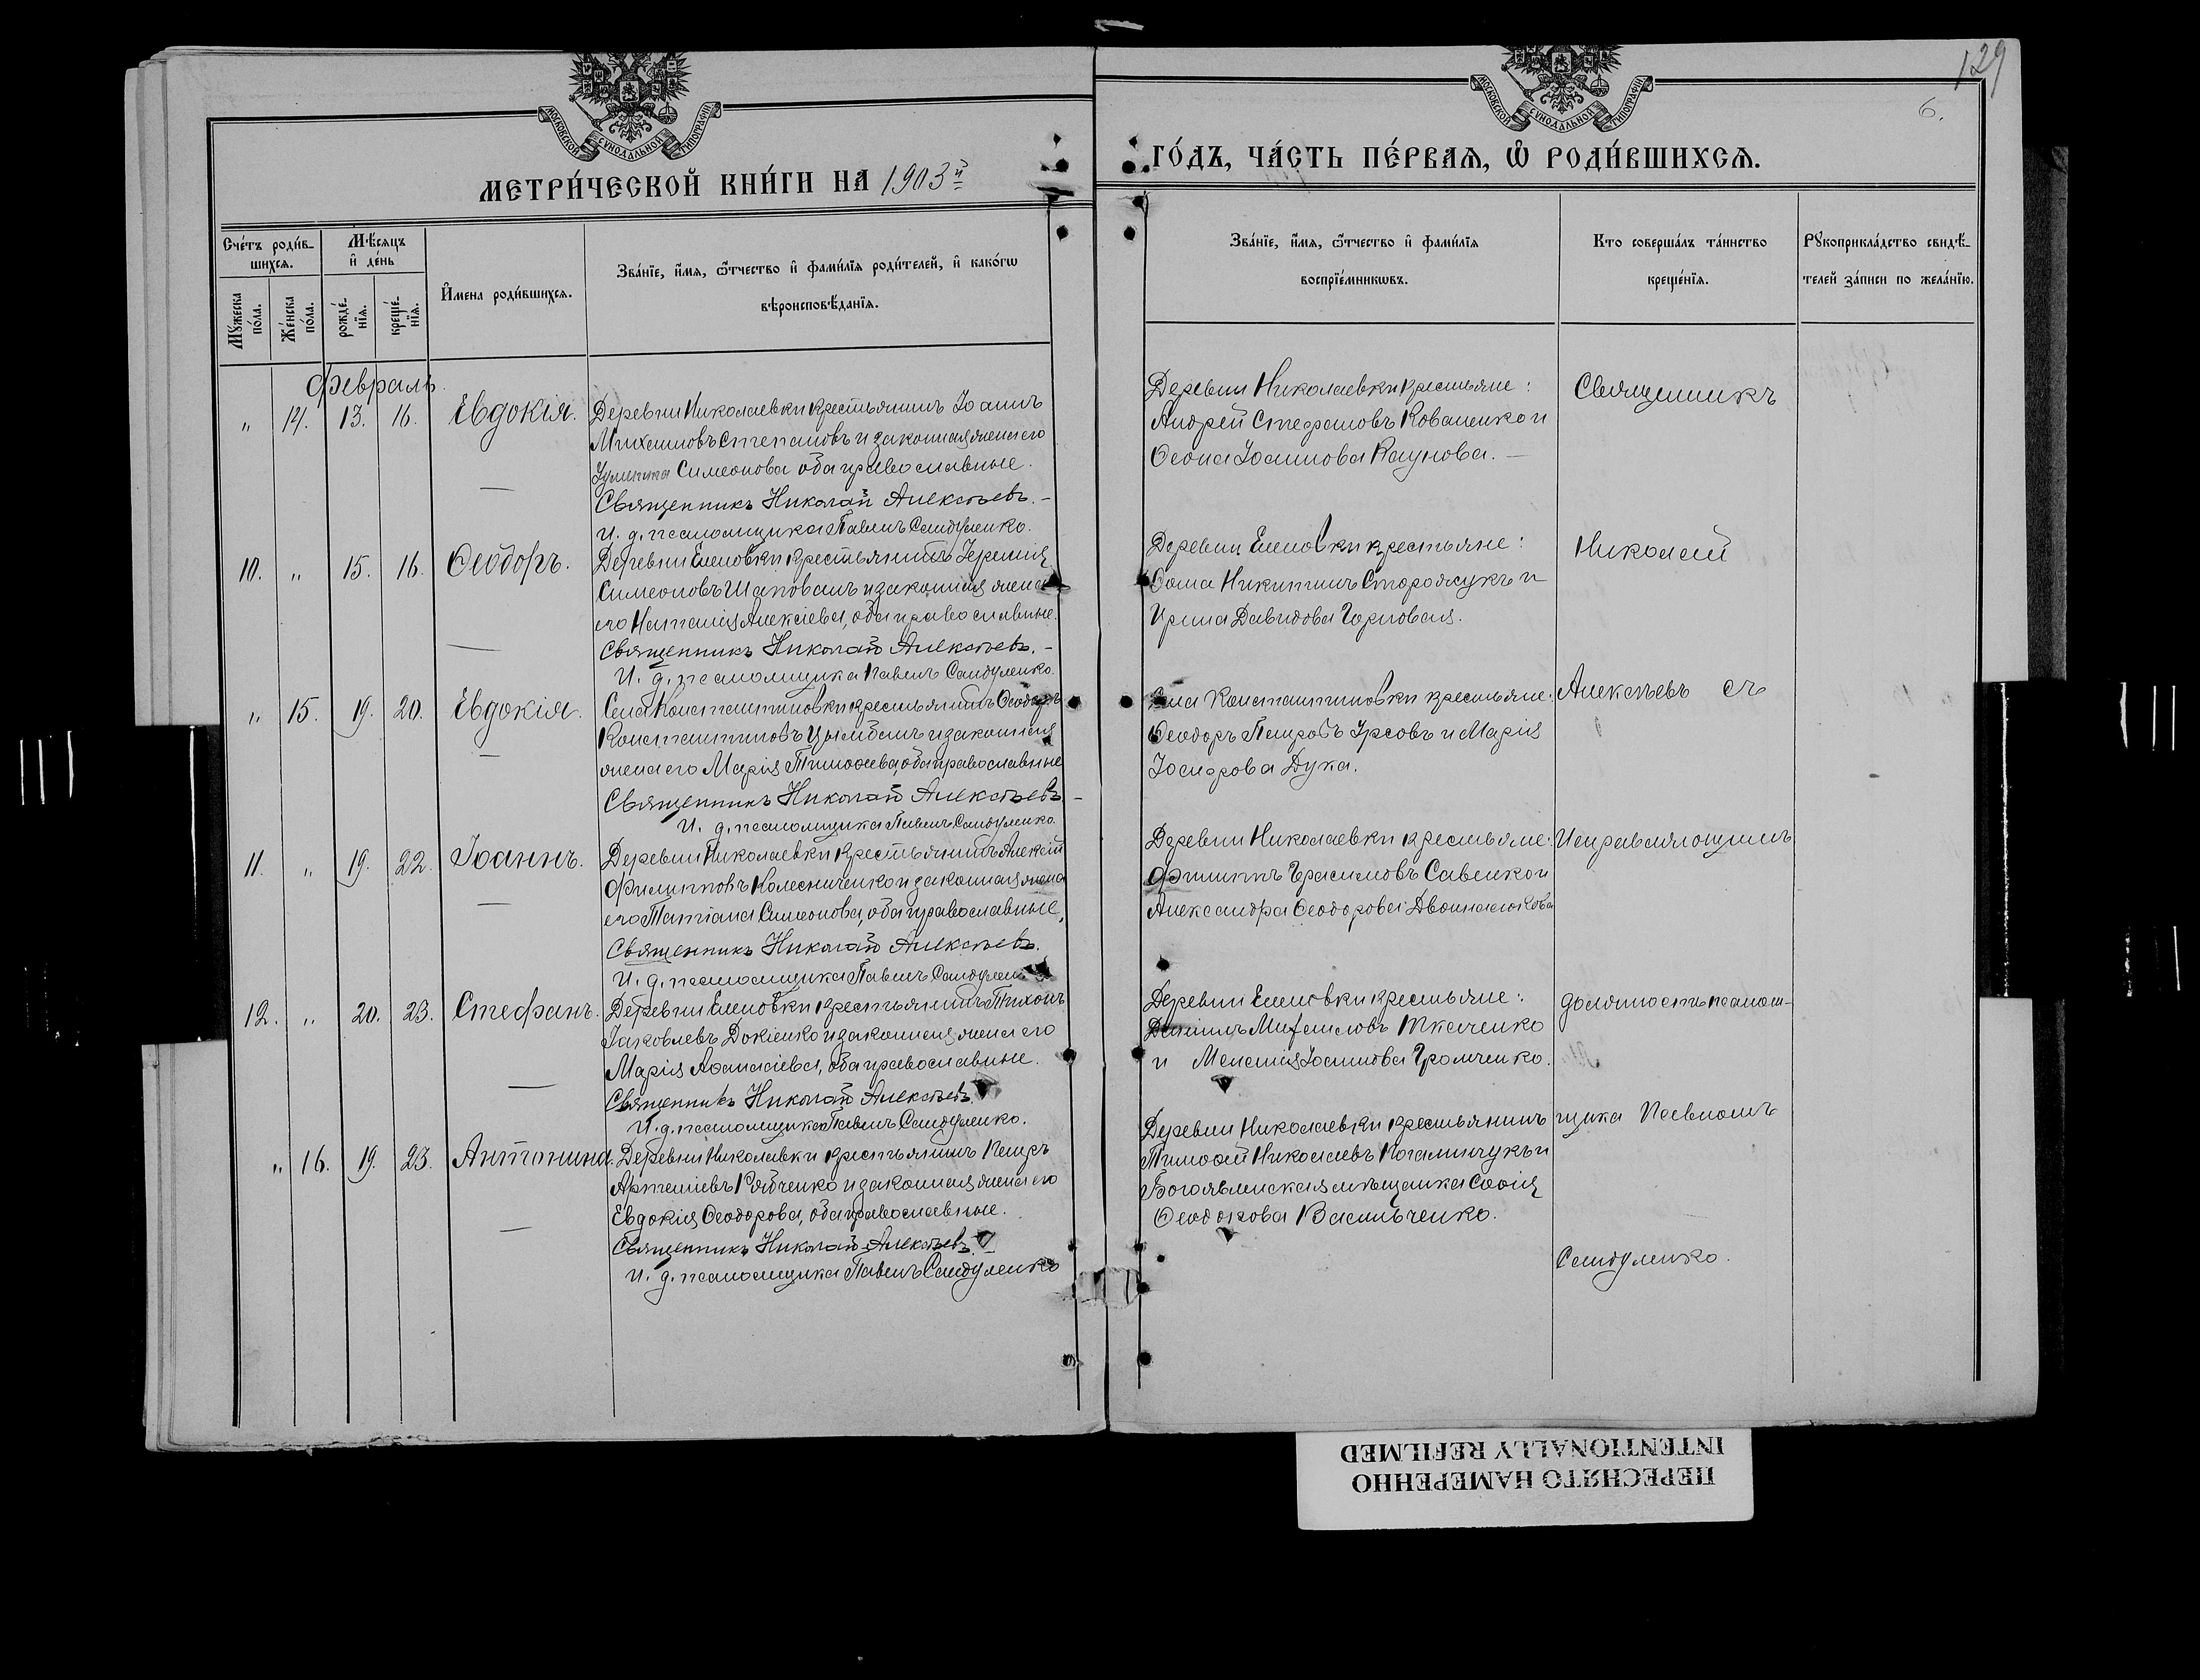 129
6.
МОСКОВСКОЙ СУНОДАЛЬНОЙ ТИПОГРАФІИ
МОСКОВСКОЙ СУНОДАЛЬНОЙ ТИПОГРАФІИ
МЕТРИ́ЧЕСКОЙ КНИ́ГИ НА 1903й
ГО́ДЪ, ЧА́СТЬ ПЕ́РВАЯ, Ѡ҆ РОДИ́ВШИХСЯ.
Сче́тъ роди́в-
шихся.
Мѣ́сяцъ
и҆ де́нь
Мꙋ́жеска по́ла.
Же́нска по́ла.
рожде́-нїя.
креще́-нїя.
И҆мена роди́вшихся.
Зва́нїе, и҆́мя, ѻ҆́тчество и҆ фами́лїя роди́телей, и҆ како́гѡ
вѣроисповѣ́данїя.
Зва́нїе, и҆́мя, ѻ҆́тчество и҆ фами́лїя
воспрїе́мникѡвъ.
Кто соверша́лъ та́инство
креще́нїя.
Рꙋкоприкла́дство свидѣ́-
телей за́писи по жела́нїю.
Февраль
" 14. 13. 16. Евдокія. Деревни Николаевки крестьянинъ Іоаннъ
Михаиловъ Степановъ и законная жена его
Симеонова оба православные.
Священникъ Николай Алексѣевъ.-
И. д. псаломщика Павелъ Сандуленко.
Деревни Николаевки крестьяне:
Андрей Стефановъ Коваленко и
Іоаннова Каунова.-
Священникъ
10. " 15. 16. Ѳеодоръ. Деревни Еленовки крестьянинъ Іеремія
Симеоновъ Шаповалъ и законная жена
его Наталія Алексіева, оба православные.
Священникъ Николай Алексѣевъ.-
И. д. псаломщика Павелъ Сандуленко.
Деревни Еленовки крестьяне:
Ѳома Никитинъ Сторожукъ и
Ирина Давидова Горловая.
Николай
" 15. 19. 20. Евдокія. Села Константиновки крестьянинъ Ѳеодоръ
Константиновъ Цымбалъ и законная
жена его Марія Тимоѳеева, оба православные
Священникъ Николай Алексѣевъ-
И. д. псаломщика Павелъ Сандуленко.
Села Константиновки крестьяне:
Ѳеодоръ Петровъ Урсовъ и Марія
Іосифова Дука.
Алексѣевъ съ
11. " 19. 22. Іоаннъ. Деревни Николаевки крестьянинъ Алексѣй
Филипповъ Колесниченко и законная жена
его Татіана Симеонова, оба православные,
Священникъ Николай Алексѣевъ.
И. д. псаломщика Павелъ
Деревни Николаевки крестьяне:
Филиппъ Герасимовъ Савенко и
Александра Ѳеодорова
Исправляющимъ
12. " 20. 23. Стефанъ. Деревни Еленовки крестьянинъ Тихонъ
Іаковлевъ Докіенко и законная жена его
Марія Аѳанасіева, оба православные.
Священникъ Николай Алексѣевъ
И. д. псаломщика Павелъ Сандуленко.
Деревни Еленовки крестьяне:
Даніилъ Михаиловъ Ткаченко
и Меланія Іоаннова Громченко.
должность псалом-
" 16. 19. 23. Антонина. Деревни Николаевки крестьянинъ Петръ
Артеміевъ Койченко и законная жена его
Евдокія Ѳеодорова, оба православные.
Священникъ Николай Алексѣевъ.
И. д. псаломщика Павелъ Сандуленко
Деревни Николаевки крестьянинъ
Тимоѳей Николаевъ и
Богоявленская мѣщанка Софія
Ѳеодорова Васильченко.
щика Павломъ
Сандуленко.
ПЕРЕСНЯТО НАМЕРЕННО
INTENTIONALLY REFILMED